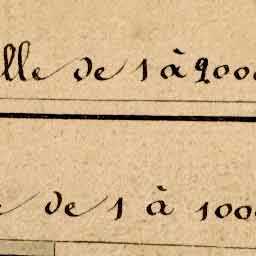 lle de 1 à 2000
e de 1 à 1000